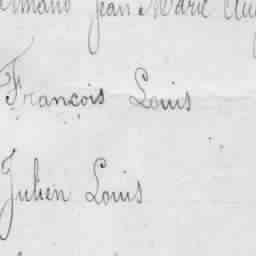 Jean Marie
François Louis
Julien Louis